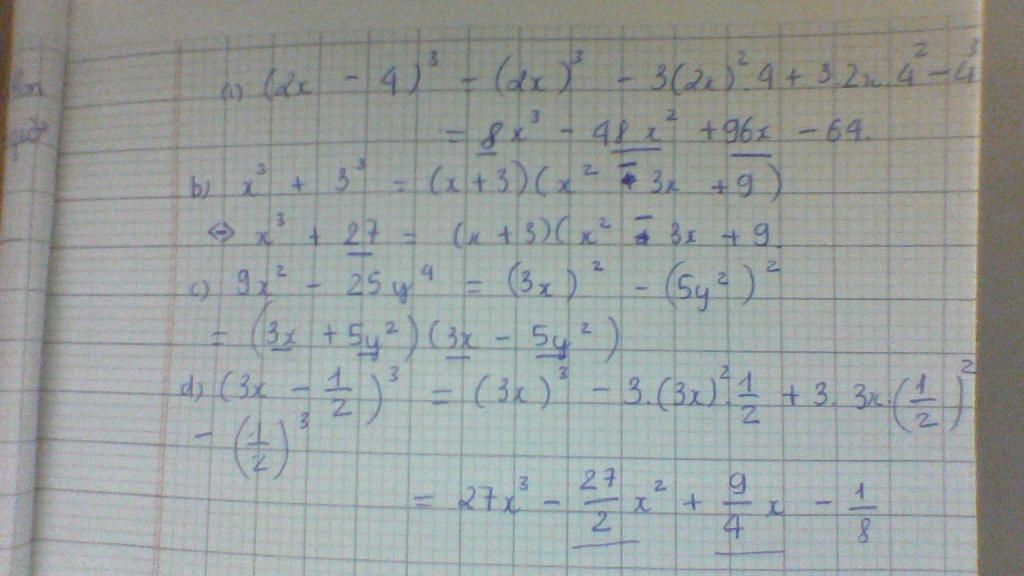 a) (2x - 4)³ = (2x)³ - 3(2x)².4 + 3.2x.4² - 4³
= 8x³ - 48x² + 96x - 64.
b) x³ + 3³ = (x+3)(x² - 3x + 9)
⇔ x³ + 27 = (x+3)(x² - 3x + 9
c) 9x² - 25y⁴ = (3x)² - (5y²)²
= (3x + 5y²)(3x - 5y²)
d) (3x - 1/2)³ = (3x)³ - 3.(3x)².1/2 + 3.3x.(1/2)²
- (1/2)³
= 27x³ - 27/2 x² + 9/4 x - 1/8